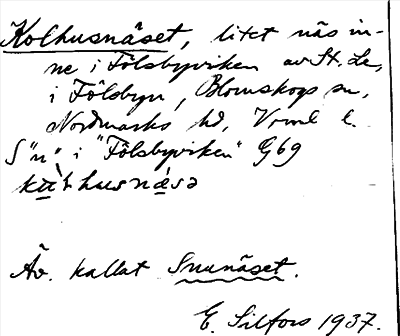 Kolhusnäset, litet näs in-
ne i Fölsbyviken av St. Le,
i Fölsbyn, Blomskogs sn,
Nordmarks hd, Vrml l.
S "n" i "Fölsbyviken" G69
Äv. kallat Snunäset.
E. Silfors 1937.